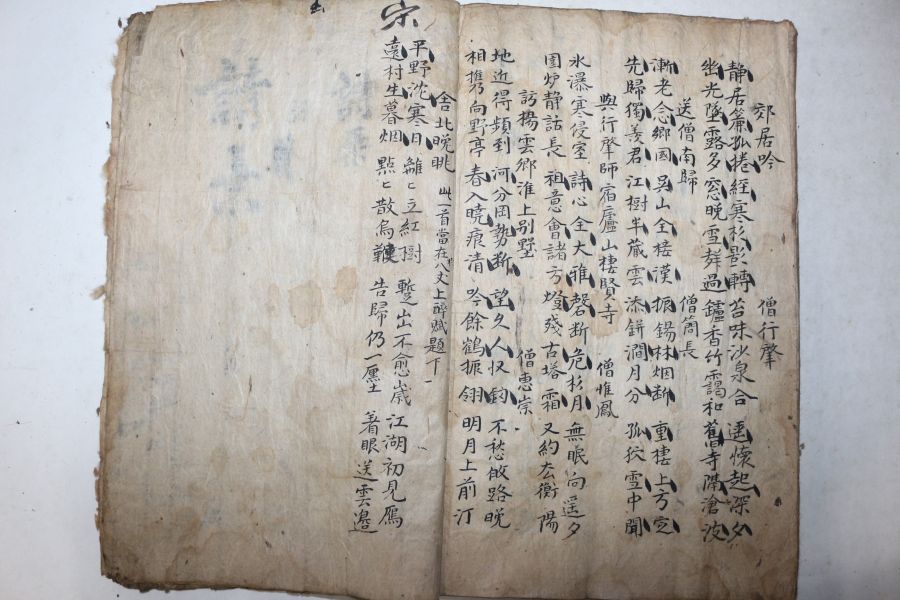 郊居吟 僧行肇
静居簾孤捲 經寒杉影轉 苔味沙泉合 遥懷起深夕
幽光墜露多 窓晚雪群過 鑪香竹靄和 舊寺隔滄波
送僧南歸 僧簡長
漸老念鄉國 吳山全接漢 振錫林烟断 重棲上方定
先歸獨羡君 江樹半藏雲 添缾澗月分 孤狖雪中聞
與行肇師宿廬山棲賢寺 僧惟鳳
氷瀑寒侵室 詩心全大雅 磬断危杉月 無眠向遥夕
圍炉静話長 祖意會諸方 燈殘古塔霜 又約去衡陽
訪揚雲卿淮上别墅 僧惠崇
地近得頻到 河分岡勢断 望久人収釣 不愁敀路晚
相携向野亭 春入曉痕清 吟餘鶴振翎 明月上前汀
宋
舍北晚眺 此一首當在八丈上醉賦題下
平野沈寒日 離〻立紅樹 蹔出不愈歲 江湖初見鴈
遠村生暮烟 點〻散烏 告歸仍一廛 著眼送雲邉